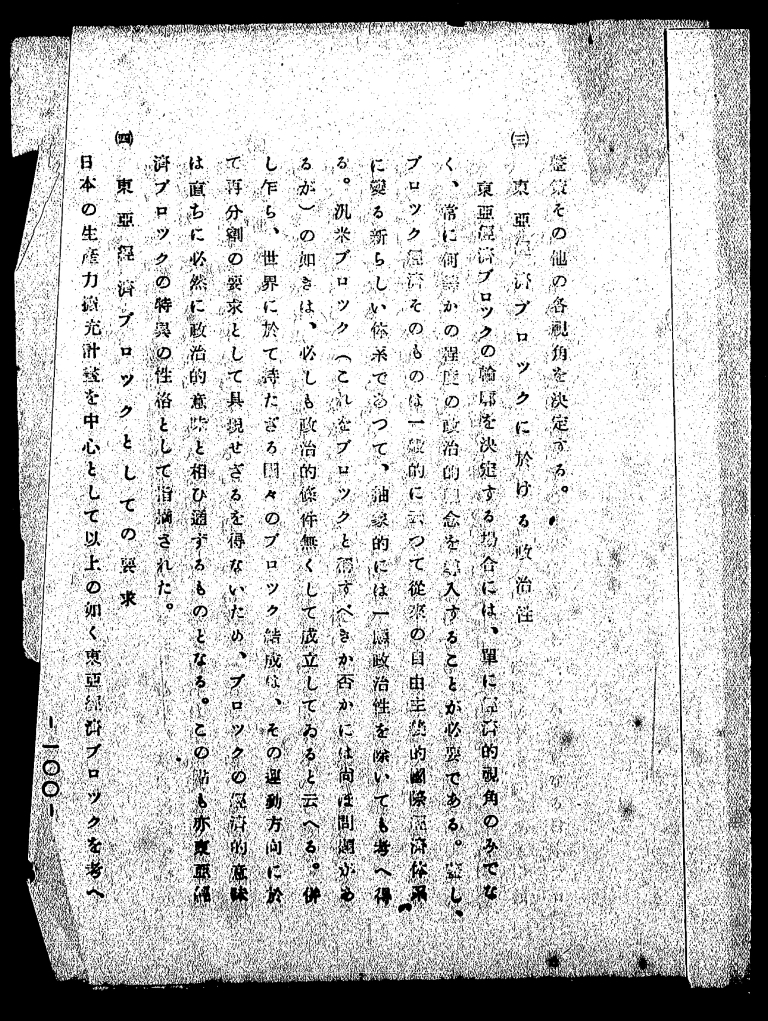 その他の各視角を決定する。
㈢　東亜経済ブロックに於ける政治性
東亜経済ブロックの輪廓を決定する場合には、單に経済的視角のみでな
く、常に何等かの程度の政治的概念を導入することが必要である。蓋し、
ブロック経済そのものは一般的に云つて従來の自由主義的國際経済体系
に變る新らしい体系であつて、抽象的には一應政治性を除いても考へ得
る。汎米ブロック（これをブロックと稱すべきか否かには尚ほ問題があ
るが）の如きは、必しも政治的條件無くして成立してゐると云へる。併
し乍ら、世界に於て持たざる國々のブロック結成は、その運動方向に於
て再分割の要求として具現せざるを得ないため、ブロックの経済的意味
は直ちに必然に政治的意味と相ひ通ずるものとなる。この點も亦東亜経
済ブロックの特異の性格として指摘された。
㈣　東亜経済ブロックとしての要求
日本の生産力擴充計畫を中心として以上の如く東亜経済ブロックを考へ
-100-